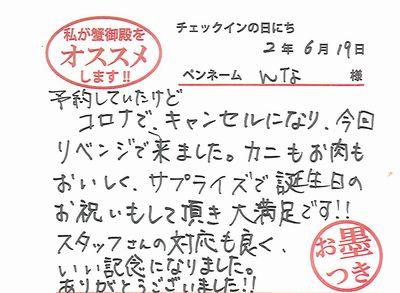 私が蟹御殿を
オススメ
します!!
チェックインの日にち
2年6月19日
ペンネーム んな 様
予約していたけど
コロナで、キャンセルになり、今回
リベンジで来ました。カニもお肉も
おいしく、サプライズで誕生日の
お祝いもして頂き大満足です!!
スタッフさんの対応も良く、
いい記念になりました。
ありがとうございました!!
お墨
つき